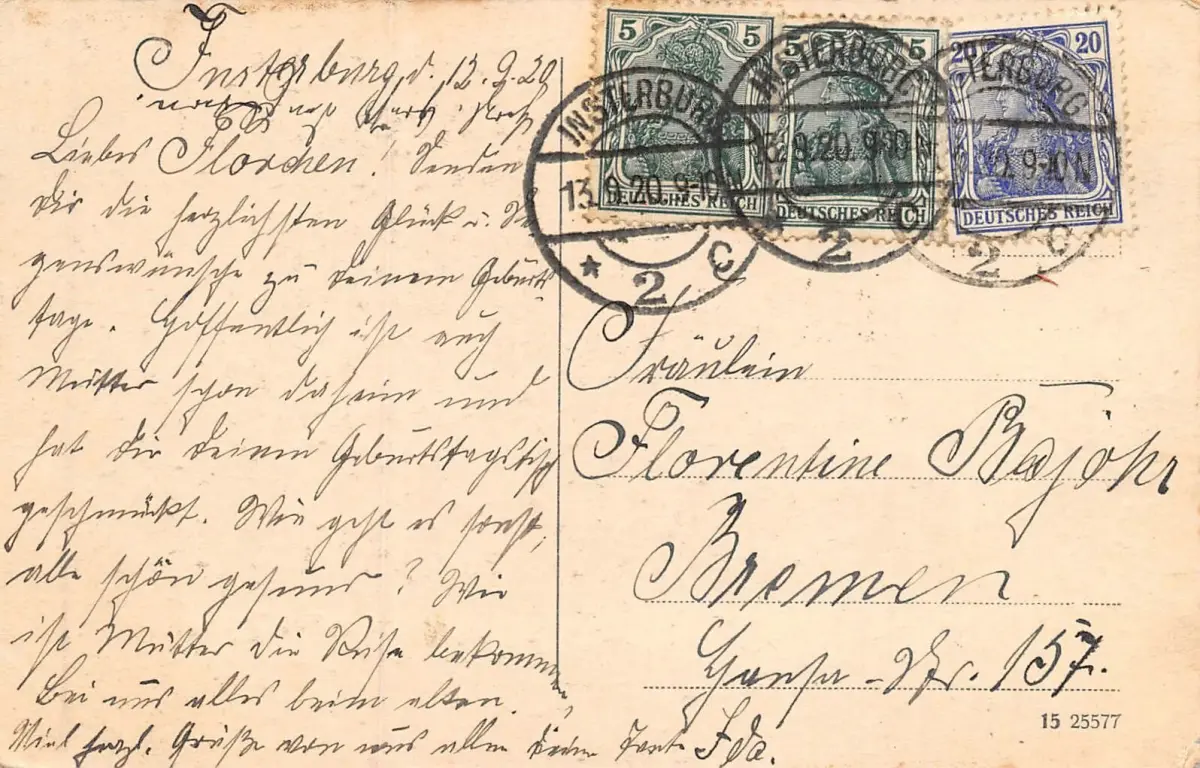 Insterburg, d. 12.9.20
Liebes Florchen! Senden
Dir die herzlichsten Glück u. Se
genswünsche zu Deinem Geburts
tage. Hoffentlich ist auch
Mutter schon daheim und
hat Dir Deinen Geburtstagstisch
geschmückt. Wie geht es sonst,
alle schön gesund? Wie
ist Mutter die Reise bekommen,
Bei uns alles beim alten.
Viel herzl. Grüße von uns allen Deine Tante Ida.
5 5
DEUTSCHES REICH
5 5
DEUTSCHES REICH
20 20
DEUTSCHES REICH
INSTERBURG
13.9.20. 9-10 N
* 2 C
INSTERBURG
13.9.20. 9-10 N
2 C
TERBURG
20. 9-10 N
2 C
Fräulein
Florentine Bajohr
Bremen
Hansa-Str. 157.
15 25577